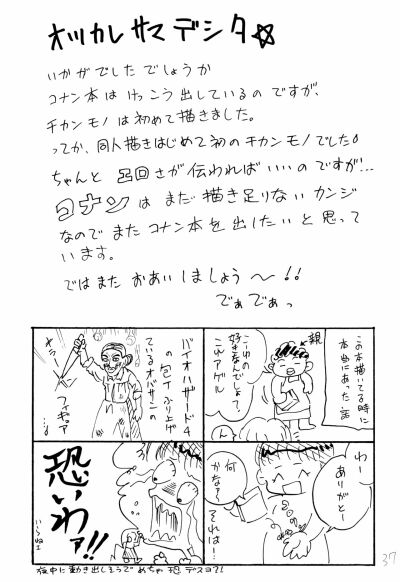 オツカレサマデシタ☆
いかがでしたでしょうか
コナン本はけっこう出しているのですが、
チカンモノは初めて描きました。
ってか、同人描きはじめて初のチカンモノでした。
ちゃんとエロさが伝わればいいのですが…
コナンはまだ描き足りないカンジ
なのでまたコナン本を出したいと思って
います。
ではまたおあいしましょう〜!!
でぁでぁっ
この本描いてる時に
本当にあった話
親
こーゆの
好きなんでしょ?
これアゲル
ん
バイオハザード4
の包丁ふり上げ
ているオバサンの
フィギュア
わー
ありがとー
何
かな?
それは!
恐いわァ!!
いらねェ
夜中に動き出しそうでめちゃ恐デスヨ?!
37